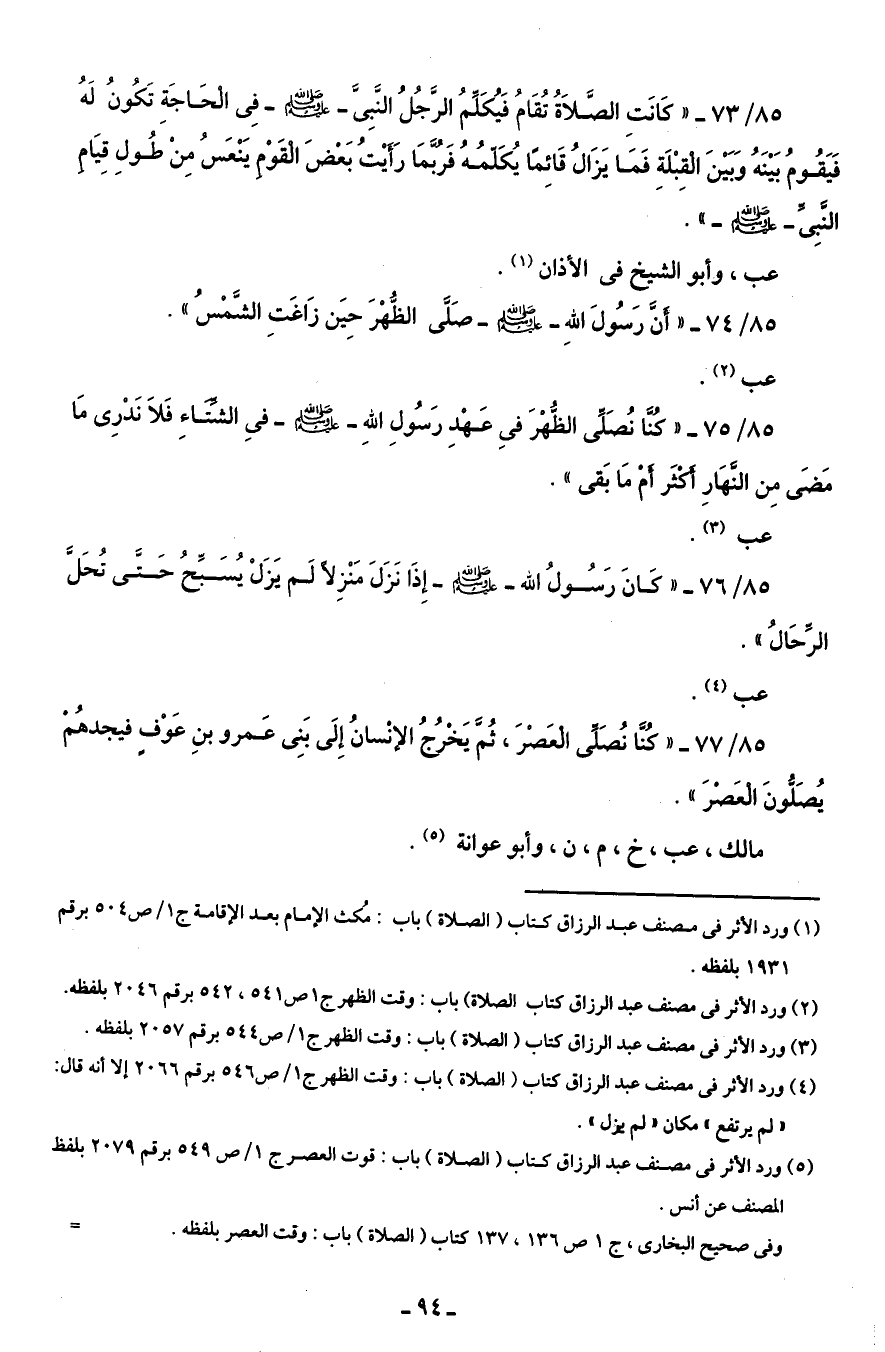 ٨٥/ ٧٣ ـ « كَانَتِ الصَّلاَةُ تُقَامُ فَيُكَلِّمُ الرَّجُلُ النَّبِىَّ ـ ﷺ ـ فِى الْحَاجَةِ تَكُونُ لَهُ
فَيَقُومُ بَيْنَهُ وَبَيْنَ الْقِبْلَةِ فَمَا يَزَالُ قَائِمًا يُكَلِّمُهُ فَرُبَّمَا رَأَيْتُ بَعْضَ الْقَوْمِ يَنْعَسُ مِنْ طُولِ قِيَامِ
النَّبِىِّ ـ ﷺ ـ » .
عب ، وأبو الشيخ فى الأذان (١) .
٨٥/ ٧٤ ـ « أَنَّ رَسُولَ اللهِ ـ ﷺ ـ صَلَّى الظُّهْرَ حِيَن زَاغَتِ الشَّمْسُ » .
عب (٢) .
٨٥/ ٧٥ ـ « كُنَّا نُصَلِّى الظُّهْرَ فىِ عَهْدِ رَسُولِ اللهِ ـ ﷺ ـ فىِ الشِّتَاءِ فَلاَ نَدْرِى مَا
مَضَى مِن النَّهَارِ أَكْثَر أَمْ مَا بَقى » .
عب (٣) .
٨٥/ ٧٦ ـ « كَانَ رَسُولُ الله ـ ﷺ ـ إِذَا نَزَلَ مَنْزِلاً لَم يَزَلْ يُسَبِّحُ حَتَّى تُحَلَّ
الرِّحَالُ » .
عب (٤) .
٨٥/ ٧٧ ـ « كُنَّا نُصَلِّى الْعَصْرَ ، ثُمَّ يَخْرُجُ الإِنْسانُ إِلَى بَنِى عَمرو بنِ عَوْفٍ فيجدهُمْ
يُصَلُّونَ الْعَصْرَ » .
مالك ، عب ، خ ، م ، ن ، وأبو عوانة (٥) .
(١) ورد الأثر فى مصنف عبد الرزاق كتاب ( الصلاة ) باب : مُكث الإمام بعد الإقامة ج١/ ص٥٠٤ برقم
١٩٣١ بلفظه .
(٢) ورد الأثر فى مصنف عبد الرزاق كتاب الصلاة) باب : وقت الظهر ج١ص٥٤١ ، ٥٤٢ برقم ٢٠٤٦ بلفظه.
(٣) ورد الأثر فى مصنف عبد الرزاق كتاب ( الصلاة ) باب : وقت الظهر ج١/ ص٥٤٤ برقم ٢٠٥٧ بلفظه .
(٤) ورد الأثر فى مصنف عبد الرزاق كتاب ( الصلاة ) باب : وقت الظهر ج١/ ص٥٤٦ برقم ٢٠٦٦ إلا أنه قال:
« لم يرتفع » مكان « لم يزل » .
(٥) ورد الأثر فى مصنف عبد الرزاق كتاب ( الصلاة ) باب : قوت العصر ج ١/ ص ٥٤٩ برقم ٢٠٧٩ بلفظ
المصنف عن أنس .
وفى صحيح البخارى ، ج ١ ص ١٣٦ ، ١٣٧ كتاب ( الصلاة ) باب : وقت العصر بلفظه . =
ـ ٩٤ ـ